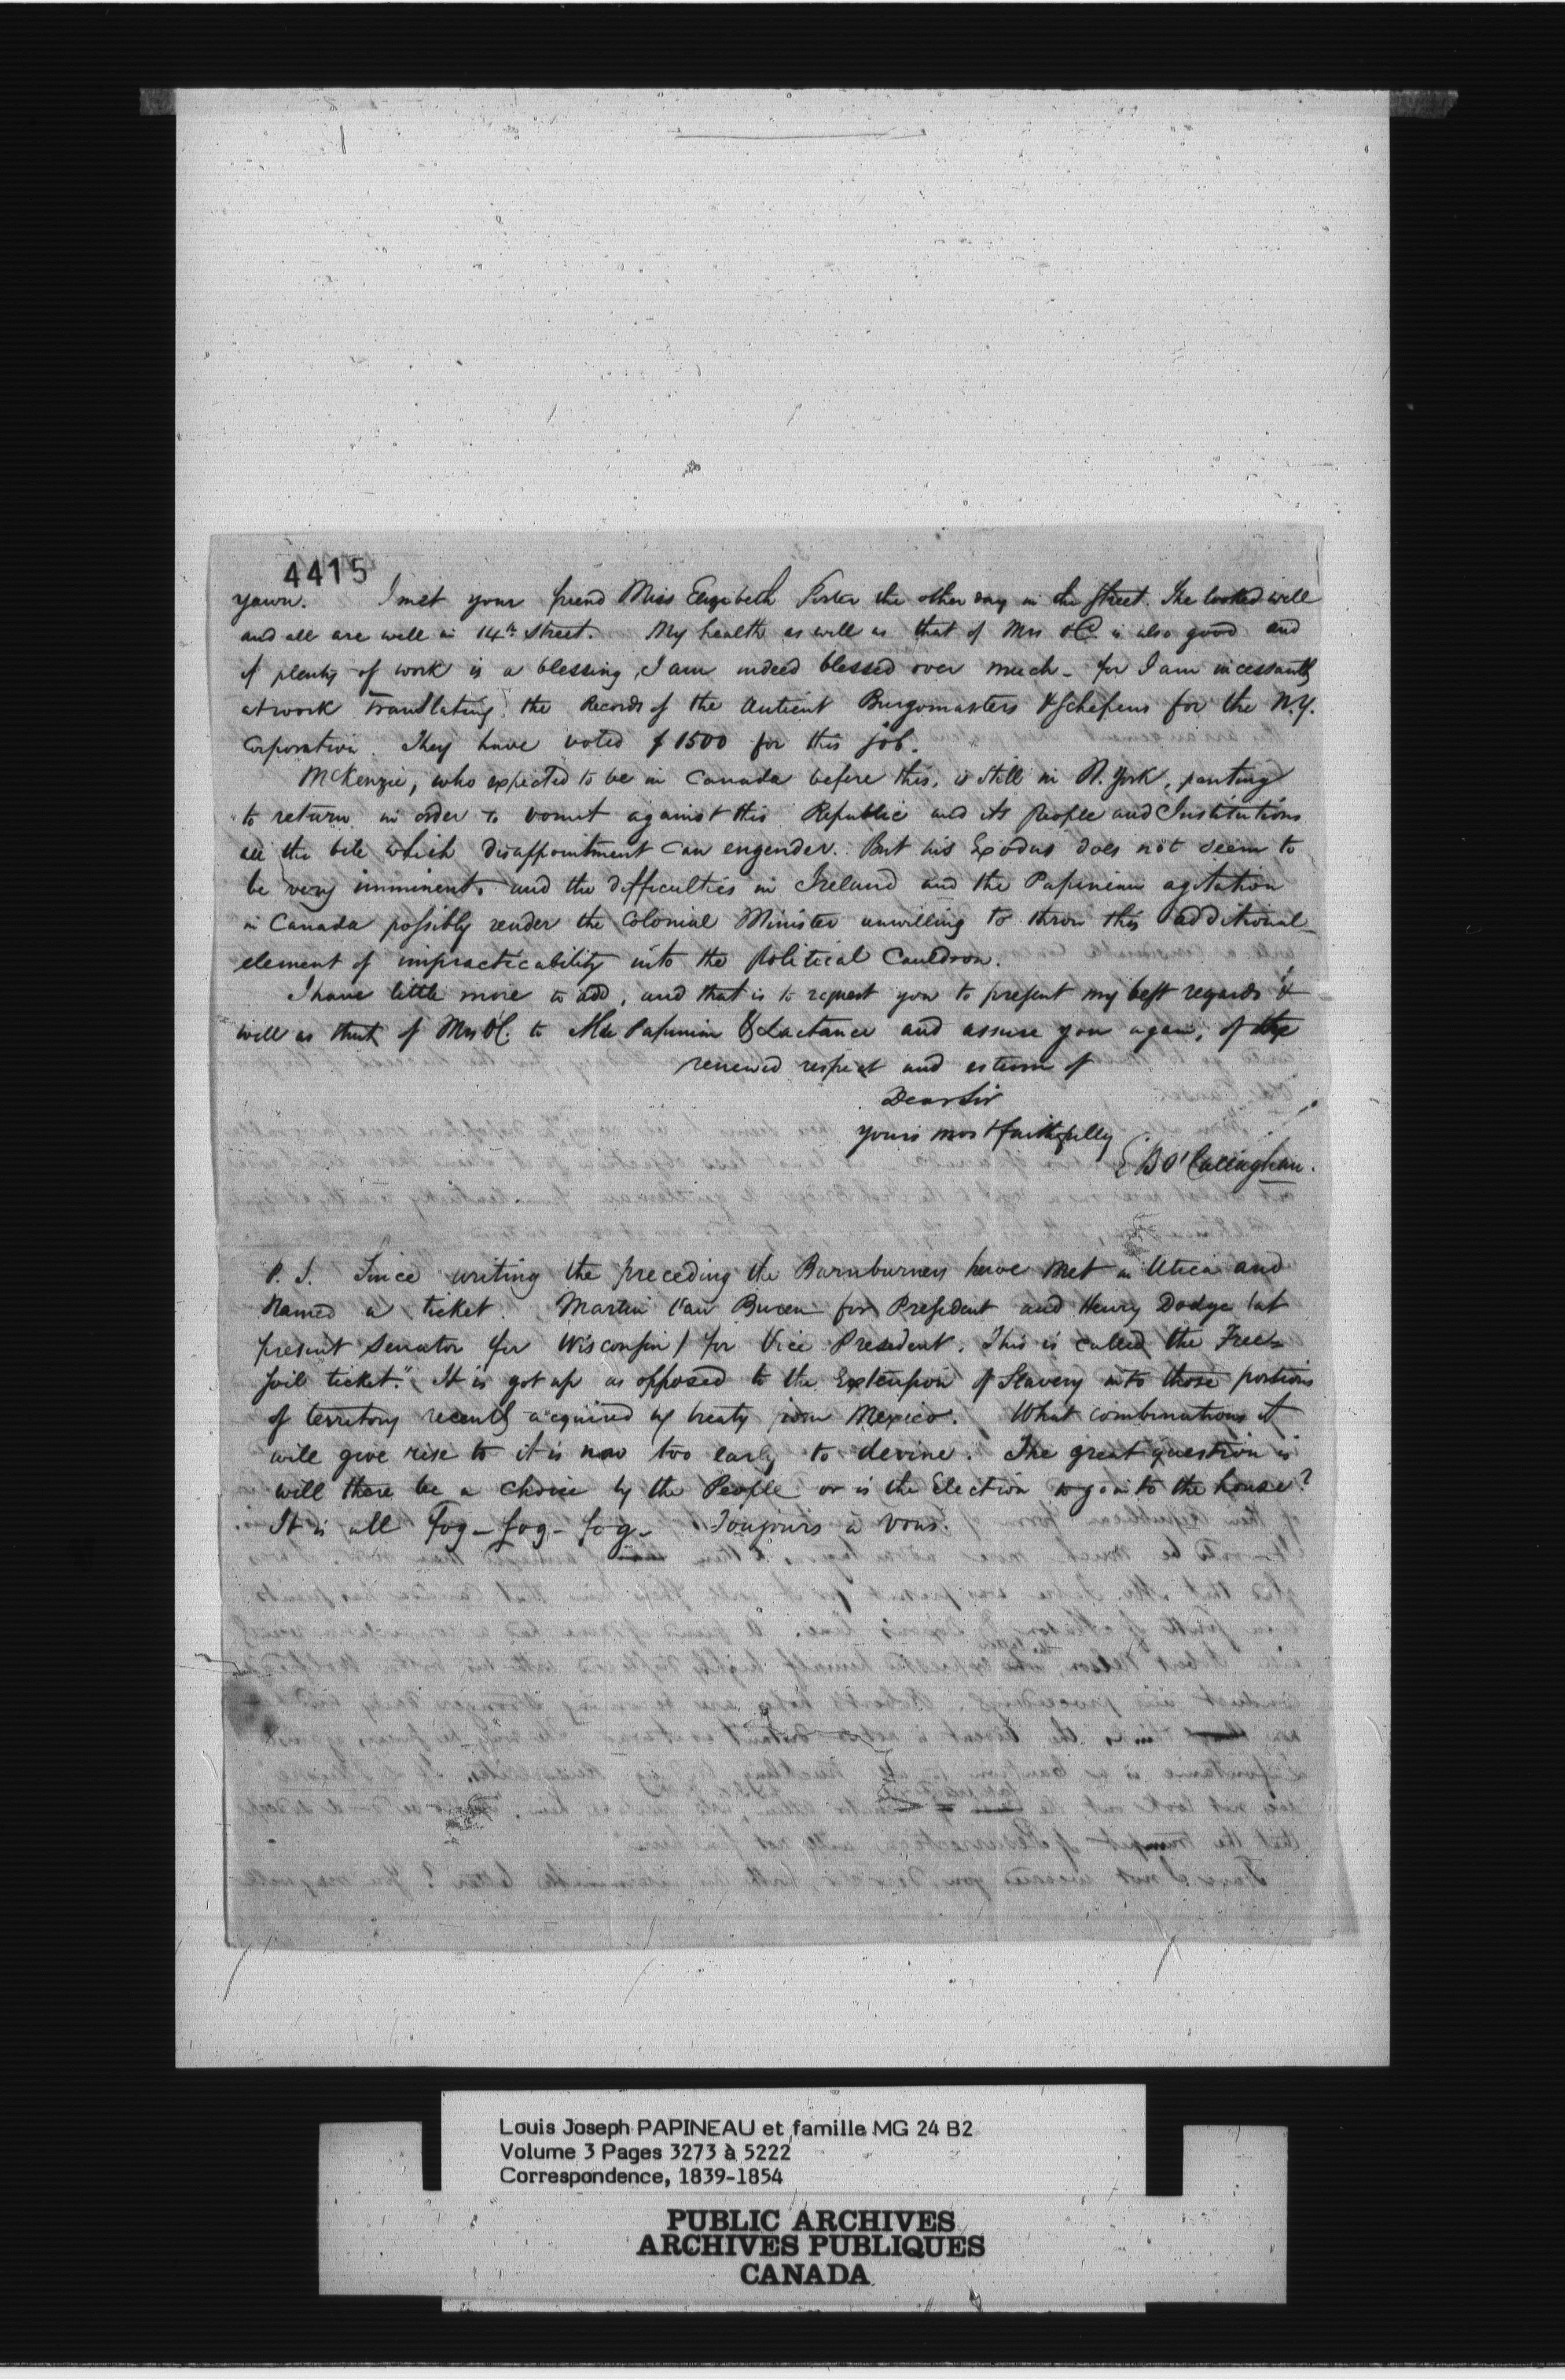 4415
yawn. I met your friend Miss Elizabeth Porter the other day in the street. She looked well
and all are well in 14th Street. My health as well as that of Mrs O'C. is also good and
if plenty of work is a blessing, I am indeed blessed over much - for I am incessantly
at work translating the Records of the Antient Burgomasters & Schepens for the N.Y.
Corporation. They have voted $1500 for this job.
McKenzie, who expected to be in Canada before this, is still in N. York, panting
to return in order to vomit against this Republic and its People and Institutions
all the bile which disappointment can engender. But his Exodus does not seem to
be very imminent, and the difficulties in Ireland and the Papineau agitation
in Canada possibly render the Colonial Minister unwilling to throw this additional
element of impracticability into the Political Cauldron.
I have little more to add, and that is to request you to present my best regards as
well as that of Mrs O'C. to Mde Papineau & Lactance and assure you again, of the
renewed respect and esteem of
Dear Sir
yours most faithfully
E B O'Callaghan.
P. S. Since writing the preceding the Barnburners have met in Utica and
named a ticket. Martin Van Buren for President and Henry Dodge (at
present Senator for Wisconsin) for Vice President. This is called the "Free-
soil ticket." It is got up as opposed to the Extension of Slavery into those portions
of territory recently acquired by treaty from Mexico. What combinations it
will give rise to it is now too early to devine. The great question is
will there be a choice by the People or is the Election to go into the house?
It is all Fog - fog - fog - Toujours à vous.
Louis Joseph PAPINEAU et famille MG 24 B2
Volume 3 Pages 3273 à 5222
Correspondence, 1839-1854
PUBLIC ARCHIVES
ARCHIVES PUBLIQUES
CANADA